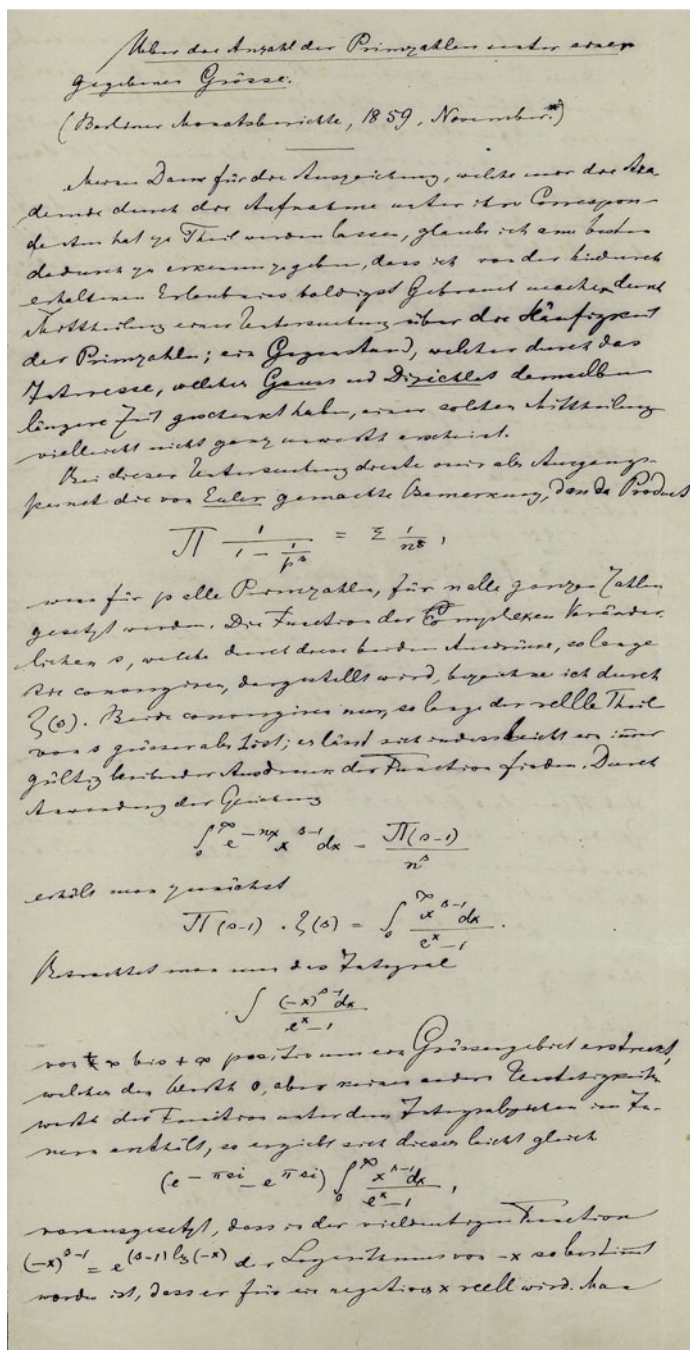 Ueber die Anzahl der Primzahlen unter einer
gegebenen Grösse.
(Berliner Monatsberichte, 1859, November.*)
Meinen Dank für die Auszeichnung, welche mir die Aka-
demie durch die Aufnahme unter ihre Correspon-
denten hat zu Theil werden lassen, glaube ich am besten
dadurch zu erkennen zu geben, dass ich von der hiedurch
erhaltenen Erlaubniss baldigst Gebrauch mache durch
Mittheilung einer Untersuchung über die Häufigkeit
der Primzahlen; ein Gegenstand, welcher durch das
Interesse, welches Gauss und Dirichlet demselben
längere Zeit geschenkt haben, einer solchen Mittheilung
vielleicht nicht ganz unwerth erscheint.
Bei dieser Untersuchung diente mir als Ausgangs-
punct die von Euler gemachte Bemerkung, dass das Product
∏ 1/(1 − 1/p^s) = Σ 1/n^s,
wenn für p alle Primzahlen, für n alle ganzen Zahlen
gesetzt werden. Die Function der complexen Veränder-
lichen s, welche durch diese beiden Ausdrücke, so lange
sie convergiren, dargestellt wird, bezeichne ich durch
ζ(s). Beide convergiren nur, so lange der reelle Theil
von s grösser als 1 ist; es lässt sich indess leicht ein immer
gültig bleibender Ausdruck der Function finden. Durch
Anwendung der Gleichung
∫_0^∞ e^{−nx} x^{s−1} dx = Π(s−1)/n^s
erhält man zunächst
Π(s−1) . ζ(s) = ∫_0^∞ x^{s−1} dx/(e^x − 1).
Betrachtet man nun das Integral
∫ (−x)^{s−1} dx/(e^x − 1)
von + ∞ bis + ∞ positiv um ein Grössengebiet erstreckt,
welches den Werth 0, aber keinen andern Unstetigkeits-
werth der Function unter dem Integralzeichen im In-
nern enthält, so ergiebt sich dieses leicht gleich
(e^{−πsi} − e^{πsi}) ∫_0^∞ x^{s−1} dx/(e^x − 1),
vorausgesetzt, dass in der vieldeutigen Function
(−x)^{s−1} = e^{(s−1) lg(−x)} der Logarithmus von −x so bestimmt
worden ist, dass er für ein negatives x reell wird. Man